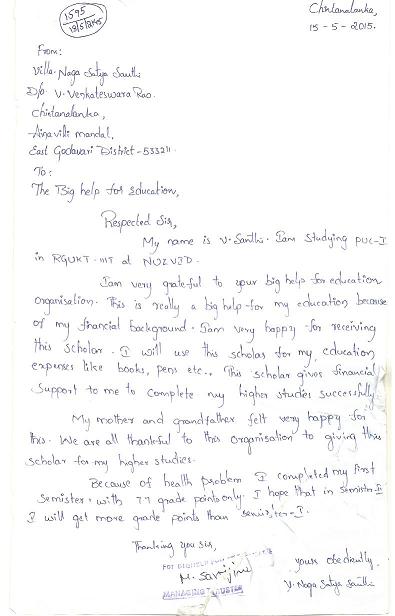 1595
18/5/2015
Chintanalanka,
15-5-2015.
From:
Villa. Naga Satya Santhi
D/o V. Venkateswara Rao.
Chintanalanka,
Ainavilli mandal,
East Godavari District-533211.
To:
The Big help for Education,
Respected Sir,
My name is V. Santhi. Iam Studying PUC-I
in RGUKT-IIIT at NUZVID.
Iam very grateful to your big help for education
organisation. This is really a big help for my education because
of my financial background. Iam very happy for receiving
this scholar. I will use this scholar for my education
expenses like books, pens etc., This scholar gives financial
Support to me to complete my higher studies successfully.
My mother and grandfather felt very happy for
this. We are all thankful to this organisation to giving this
scholar for my higher studies.
Because of health problem I completed my first
Semister with 7.7 grade points only. I hope that in Semister-II
I will get more grade points than semister-I.
Thanking you sir,
FOR BIGHELP
yours obediently.
M. Sarojini
V. Naga Satya Santhi
MANAGING TRUSTEE